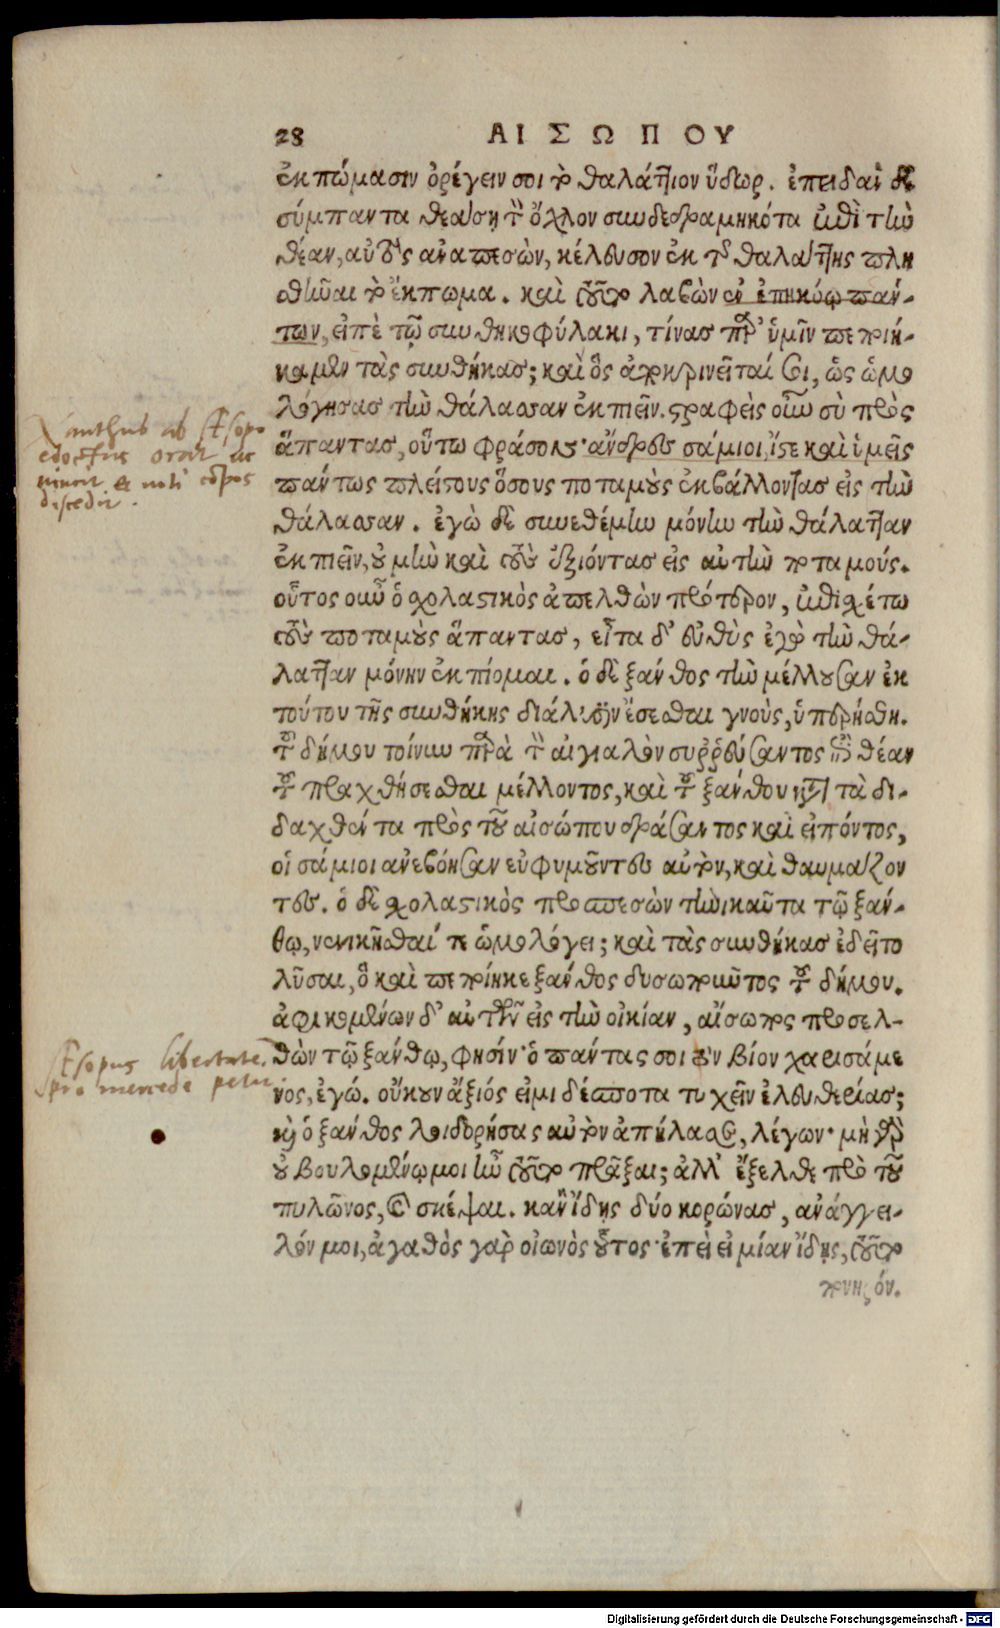 28 ΑΙΣΩΠΟΥ
ἐκπώμασιν ὀρέγειν σοι τὸ θαλάττιον ὕδωρ. ἐπειδὰν δὲ
σύμπαντα θεάσῃ τὸν ὄχλον συνδεδραμηκότα ἐπὶ τὴν
θέαν, αὐτὸς ἀναπεσὼν, κέλευσον ἐκ τῆς θαλάττης πλη
σθῆναι τὸ ἔκπωμα. καὶ τοῦτο λαβὼν ἐν ἐπηκόῳ πάν-
των, εἰπὲ τῷ συνθηκοφύλακι, τίνας παρ' ὑμῖν πεποιή-
καμεν τὰς συνθήκας; καὶ ὃς ἀποκρινεῖταί σοι, ὡς ὡμο
λόγησας τὴν θάλασσαν ἐκπιεῖν. στραφεὶς οὖν σὺ πρὸς
ἅπαντας, οὕτω φράσον· ἄνδρες σάμιοι, ἴστε καὶ ὑμεῖς
πάντως πλείστους ὅσους ποταμοὺς ἐκβάλλοντας εἰς τὴν
θάλασσαν. ἐγὼ δὲ συνεθέμην μόνην τὴν θάλατταν
ἐκπιεῖν, οὐ μὴν καὶ τοὺς ἐξιόντας εἰς αὐτὴν ποταμούς.
οὗτος οὖν ὁ σχολαστικὸς ἀπελθὼν πρότερον, ἐπισχέτω
τοὺς ποταμοὺς ἅπαντας, εἶτα δ' εὐθὺς ἐγὼ τὴν θά-
λατταν μόνην ἐκπίομαι. ὁ δὲ ξάνθος τὴν μέλλουσαν ἐκ
τούτου τῆς συνθήκης διάλυσιν ἔσεσθαι γνοὺς, ὑπερήσθη.
τοῦ δήμου τοίνυν παρὰ τὸν αἰγιαλὸν συῤῥεύσαντος ἐπὶ θέαν
τοῦ πραχθήσεσθαι μέλλοντος, καὶ τοῦ ξάνθου κατὰ τὰ δι-
δαχθέντα πρὸς τοῦ αἰσώπου δράσαντος καὶ εἰπόντος,
οἱ σάμιοι ἀνεβόησαν εὐφημοῦντες αὐτὸν, καὶ θαυμάζον
τες. ὁ δὲ σχολαστικὸς προσπεσὼν τηνικαῦτα τῷ ξάν-
θῳ, νενικῆσθαί τε ὡμολόγει; καὶ τὰς συνθήκας ἐδεῖτο
λῦσαι, ὃ καὶ πεποίηκε ξάνθος δυσωποῦντος τοῦ δήμου.
ἀφικομένων δ' αὐτῶν εἰς τὴν οἰκίαν, αἴσωπος προσελ-
θὼν τῷ ξάνθῳ, φησίν· ὁ πάντα σοι τὸν βίον χαρισάμε
νος, ἐγώ. οὔκουν ἄξιός εἰμι δέσποτα τυχεῖν ἐλευθερίας;
καὶ ὁ ξάνθος λοιδορήσας αὐτὸν ἀπήλασε, λέγων· μὴ γὰρ
οὐ βουλομένῳ μοι ἦν τοῦτο πρᾶξαι; ἀλλ' ἔξελθε πρὸ τοῦ
πυλῶνος, καὶ σκέψαι. κἂν ἴδῃς δύο κορώνας, ἀνάγγει-
λόν μοι, ἀγαθὸς γὰρ οἰωνὸς οὗτος· ἐπεὶ εἰ μίαν ἴδῃς, τοῦτο
πονηρόν.
Xanthus ab Æsopo
edoctus orat ac
vincit et
discedit.
Æsopus libertatem
pro mercede petit
Digitalisierung gefördert durch die Deutsche Forschungsgemeinschaft - DFG